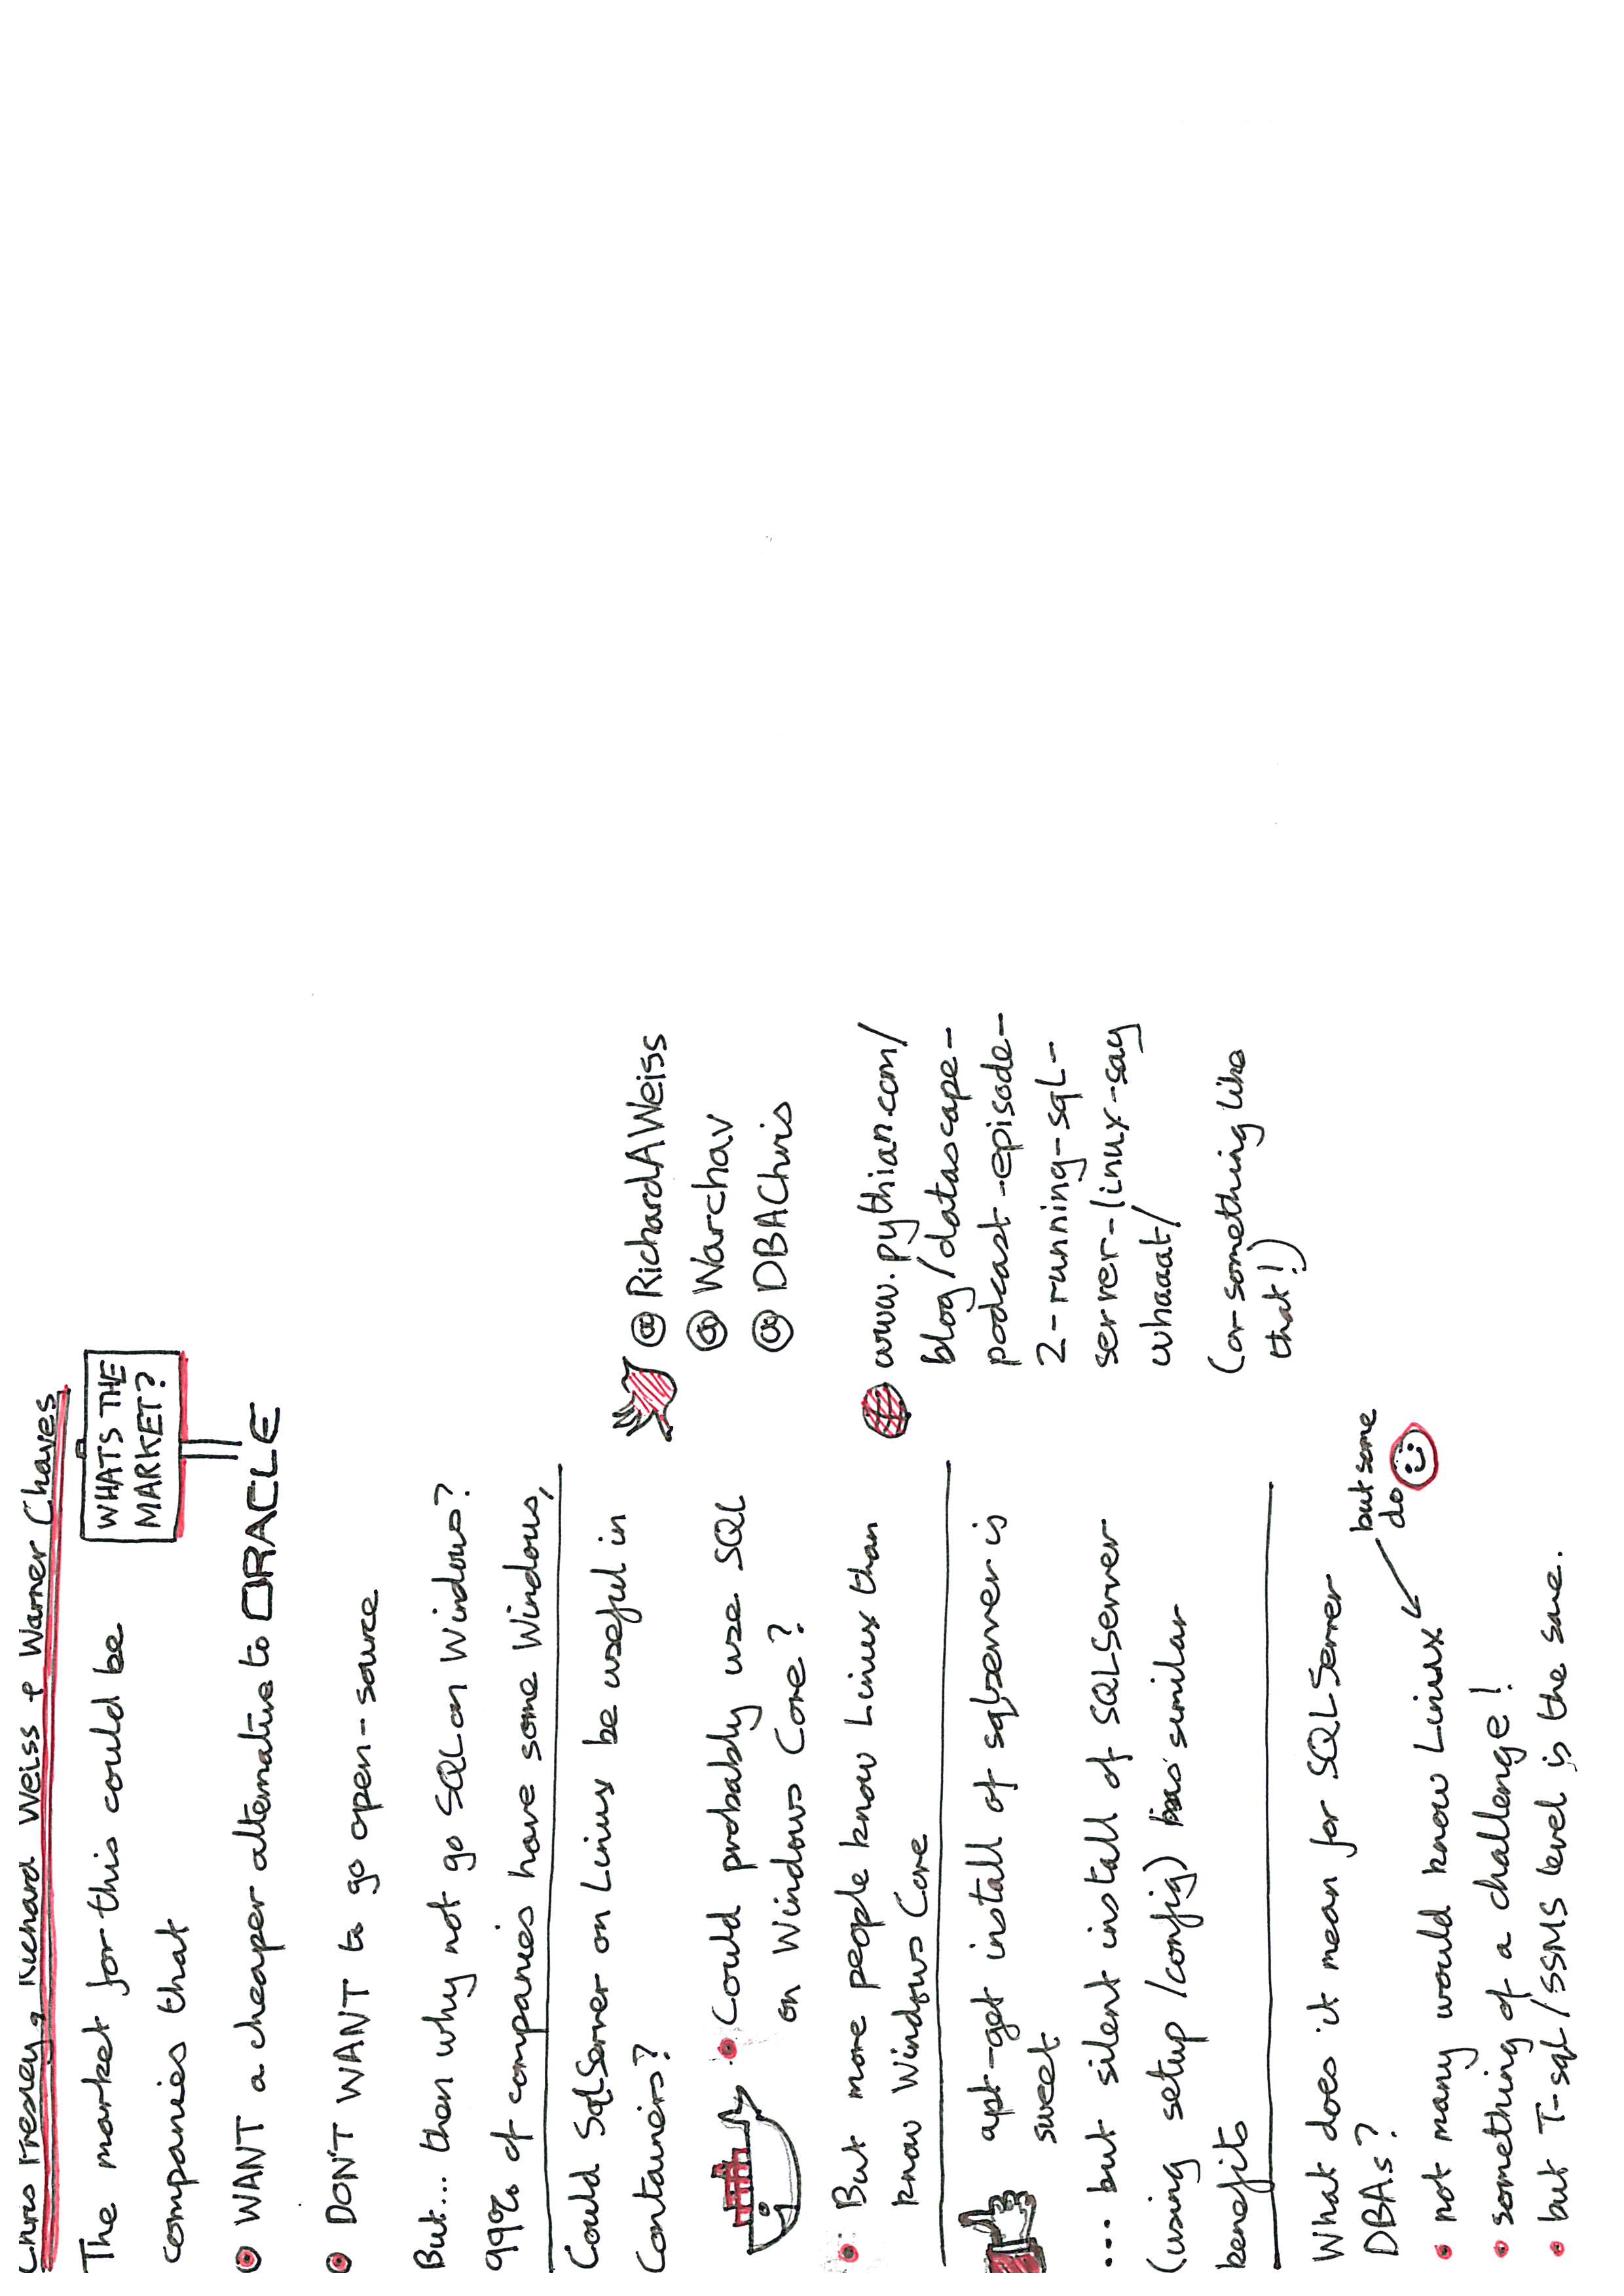 Chris Presley, Richard Weiss & Warner Chaves
The market for this could be
companies that
WHATS THE
MARKET?
WANT a cheaper alternative to ORACLE
DON'T WANT to go open-source
But... then why not go SQL on Windows?
99% of companies have some Windows,
Could SqlServer on Linux be useful in
Containers?
Could probably use SQL
on Windows Core?
But more people know Linux than
know Windows Core
apt-get install of sqlserver is
sweet
... but silent install of SQLServer
(using setup /config) has similar
benefits
What does it mean for SQLServer
DBAs?
• not many would know Linux
but some
do
• something of a challenge!
• but T-sql/SSMS level is the same.
@RichardAWeiss
@Warchav
@DBAChris
www.pythian.com/
blog/datascape-
podcast-episode-
2-running-sql-
server-linux-say
whaaat/
(or something like
that!)